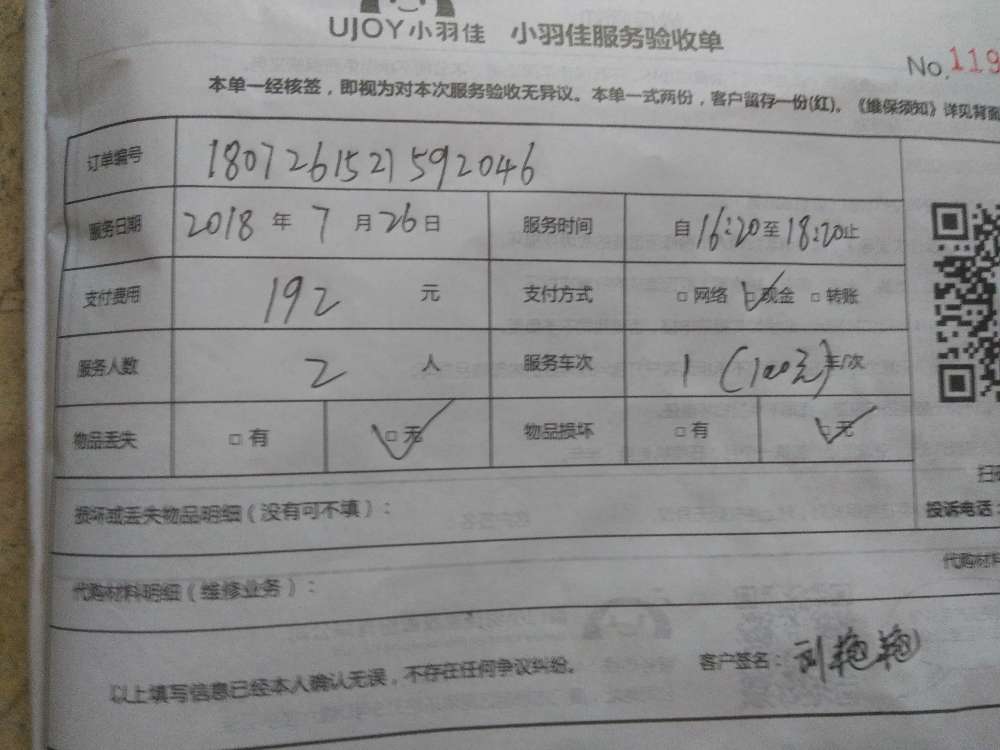 UJOY小羽佳 小羽佳服务验收单
No.119
本单一经核签，即视为对本次服务验收无异议。本单一式两份，客户留存一份(红)。《维保须知》详见背面
订单编号 1807261521592046
服务日期 2018 年 7 月 26 日 服务时间 自 16:20 至 18:20 止
支付费用 192 元 支付方式 □ 网络 □ 现金 □ 转账
服务人数 2 人 服务车次 1 (100元) 车/次
物品丢失 □ 有 □ 无 物品损坏 □ 有 □ 无
损坏或丢失物品明细（没有可不填）：
投诉电话：
代购材料明细（维修业务）：
代购材料
以上填写信息已经本人确认无误，不存在任何争议纠纷。 客户签名：刘艳艳